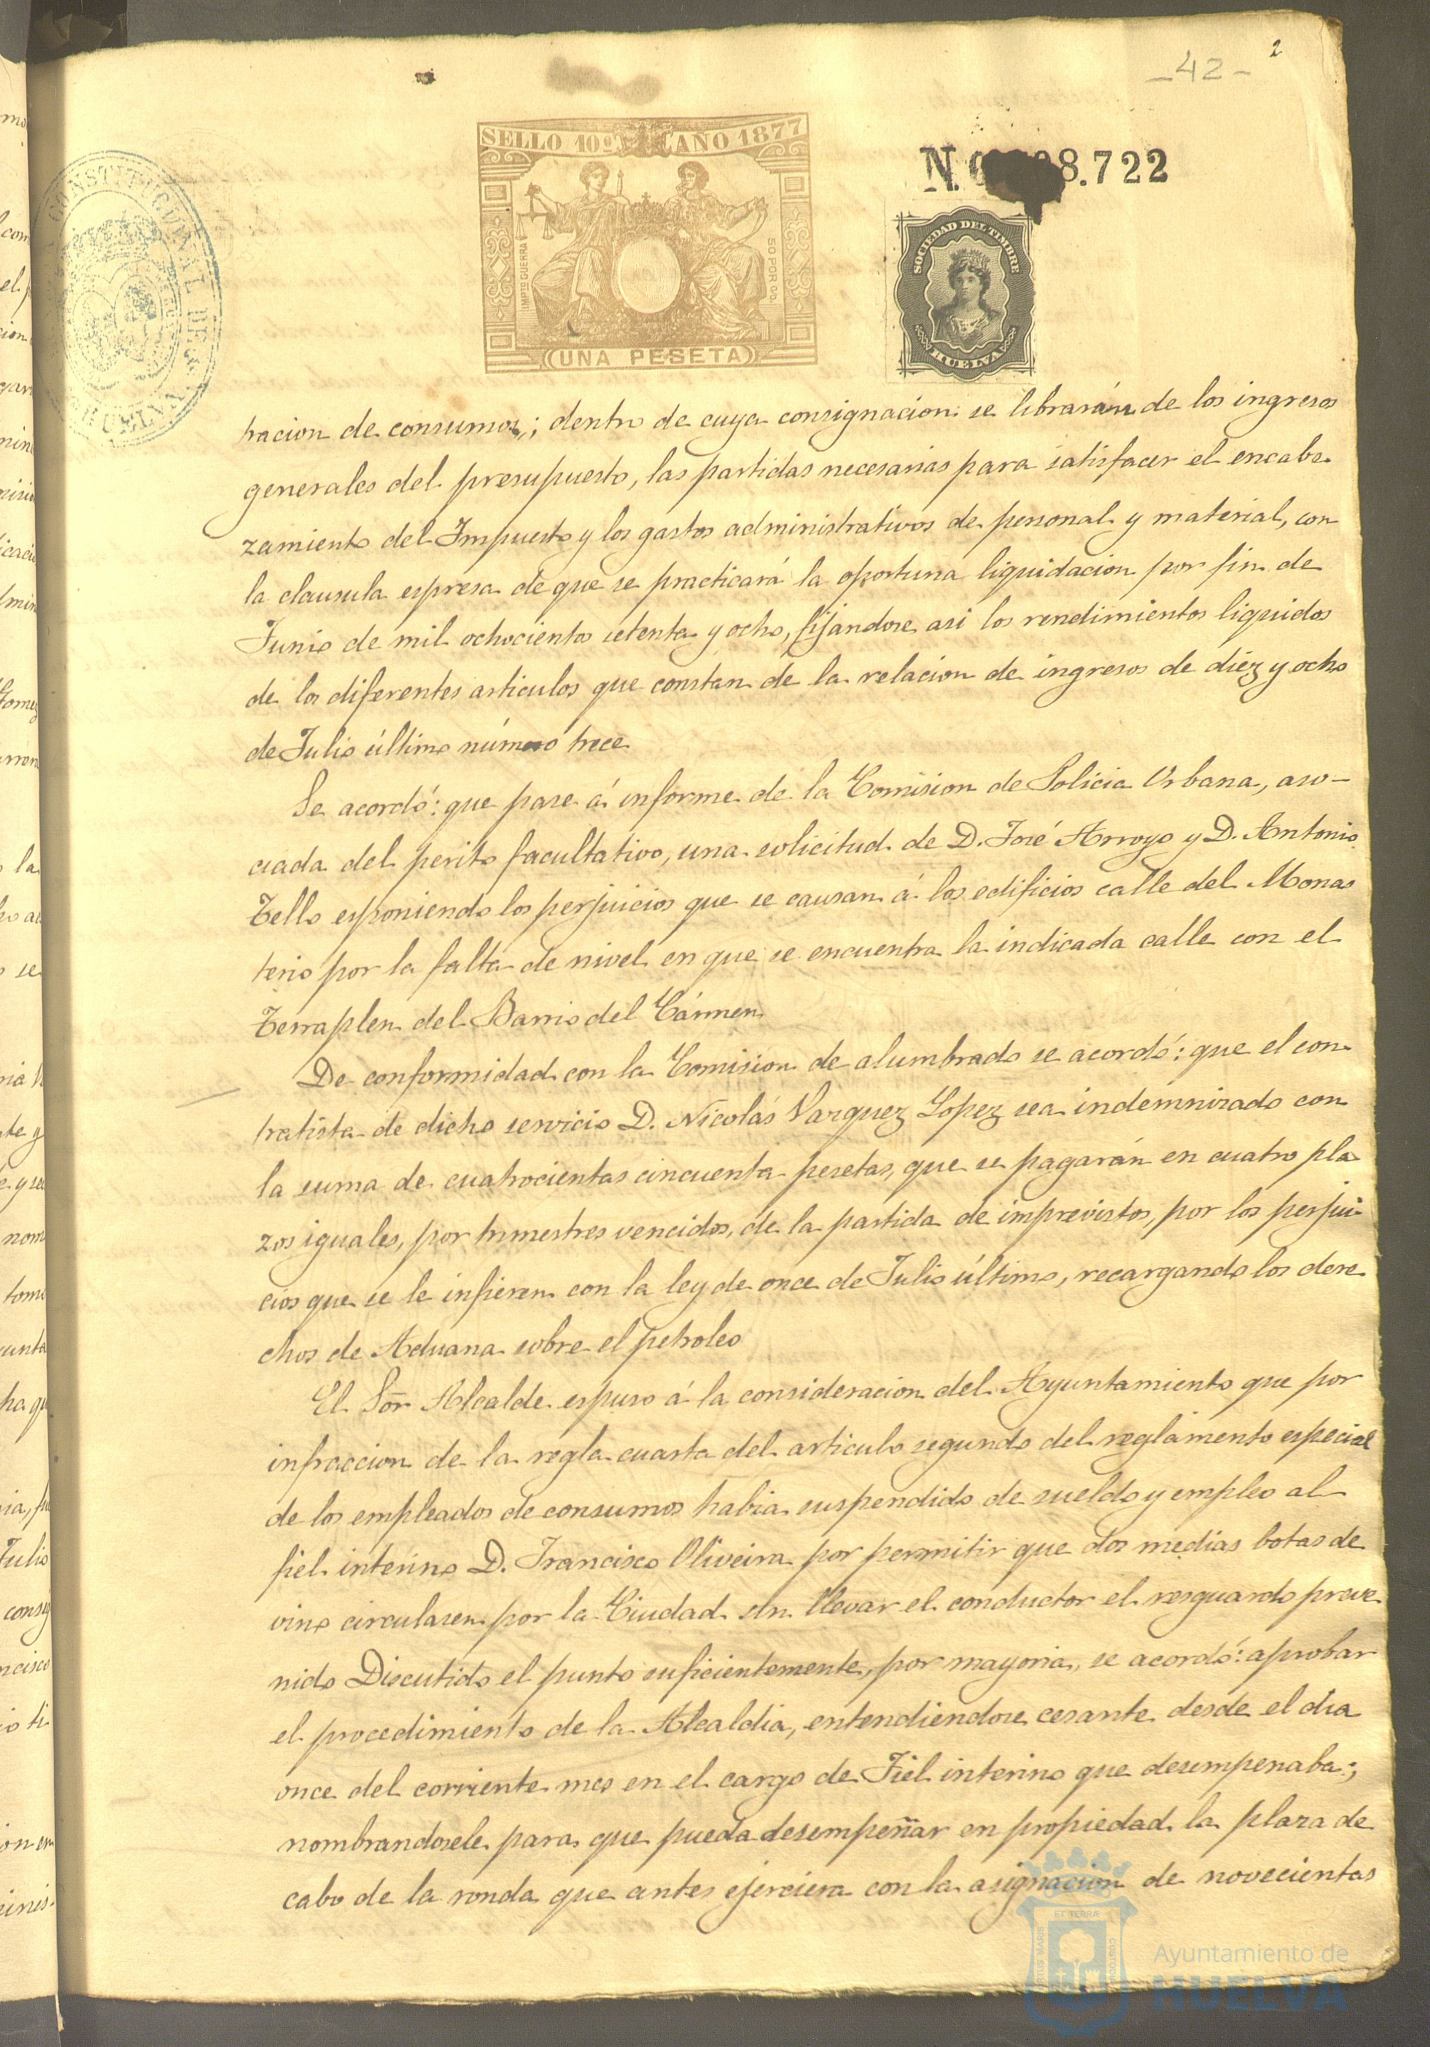 -42-
2
SELLO 10º AÑO 1877
IMPTO GUERRA
50 POR 00
UNA PESETA
8.722
SOCIEDAD DEL TIMBRE
HUELVA
CONSTITUCIONAL DE
HUELVA
racion de consumos; dentro de cuya consignacion se librarán de los ingresos
generales del presupuesto, las partidas necesarias para satisfacer el encabe
zamiento del Impuesto y los gastos administrativos de personal y material, con
la clausula espresa de que se practicará la oportuna liquidacion por fin de
Junio de mil ochocientos setenta y ocho, fijandose asi los rendimientos liquidos
de los diferentes articulos que constan de la relacion de ingresos de diez y ocho
de Julio último número trece
Se acordó: que pase á informe de la Comision de Policia Urbana, aso-
ciada del perito facultativo, una solicitud de D. José Arroyo y D. Antonio
Tello esponiendo los perjuicios que se causan á los edificios calle del Monas
terio por la falta de nivel en que se encuentra la indicada calle con el
Terraplen del Barrio del Cármen
De conformidad con la Comision de alumbrado se acordó: que el con
tratista de dicho servicio D. Nicolás Vazquez Lopez sea indemnizado con
la suma de cuatrocientas cincuenta pesetas, que se pagarán en cuatro pla
zos iguales, por trimestres vencidos, de la partida de imprevistos, por los perjui
cios que se le infieren con la ley de once de Julio último, recargando los dere
chos de Aduana sobre el petroleo
El Sõr Alcalde espuso á la consideracion del Ayuntamiento que por
infraccion de la regla cuarta del articulo segundo del reglamento especial
de los empleados de consumos habia suspendido de sueldo y empleo al
fiel interino D. Francisco Oliveira por permitir que dos medias botas de
vino circulasen por la Ciudad sin llevar el conductor el resguardo preve
nido Discutido el punto suficientemente, por mayoria, se acordó: aprobar
el procedimiento de la Alcaldia, entendiendose cesante desde el dia
once del corriente mes en el cargo de Fiel interino que desempenaba;
nombrandosele para que pueda desempeñar en propiedad la plaza de
cabo de la ronda que antes ejerciera con la asignacion de novecientas
Ayuntamiento de
HUELVA